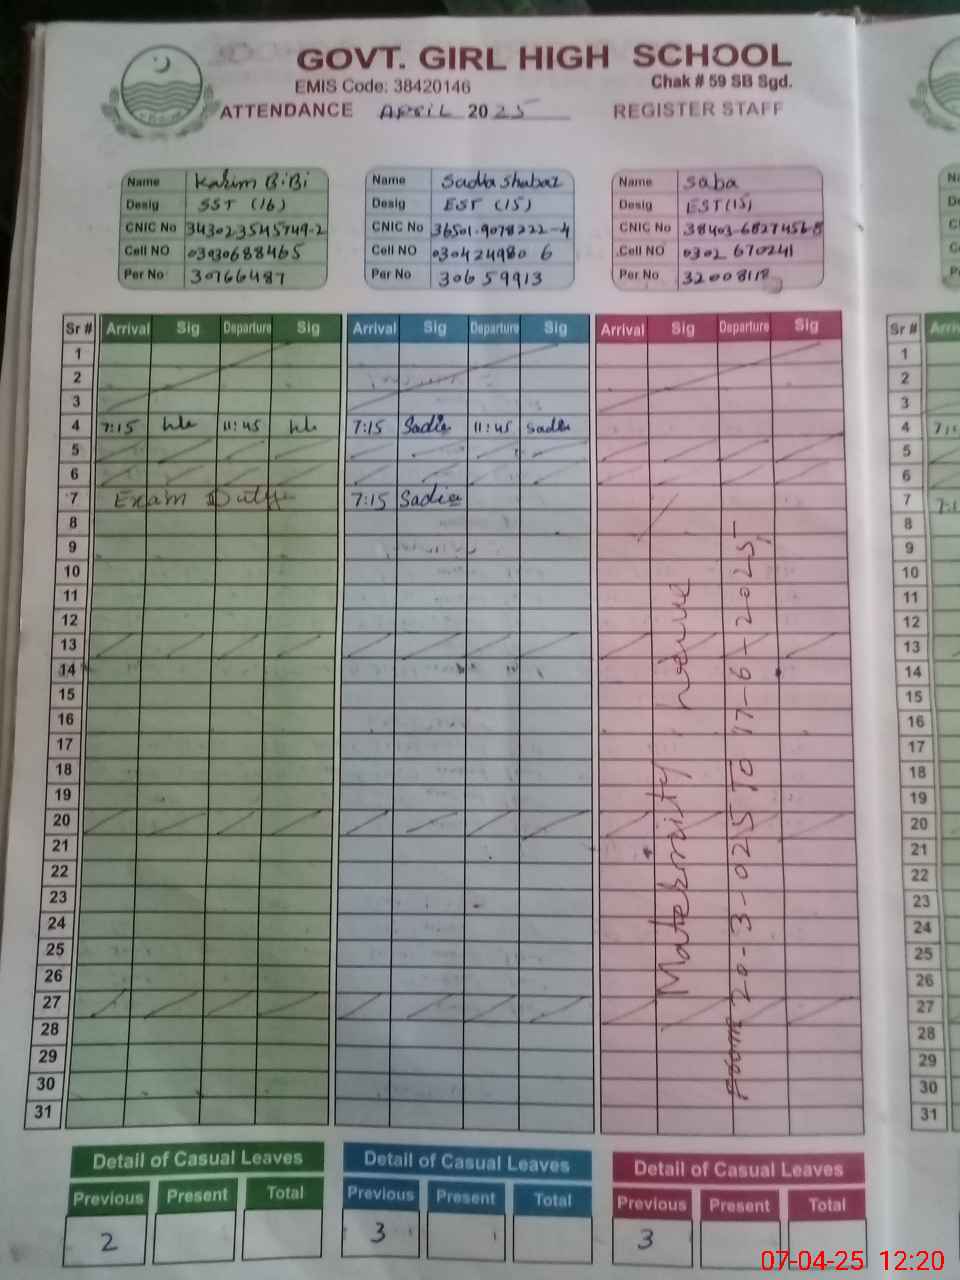 GOVT. GIRL HIGH SCHOOL
EMIS Code: 38420146 Chak # 59 SB Sgd.
ATTENDANCE APRIL 2025 REGISTER STAFF
Name Kalsum BiBi
Desig SST (16)
CNIC No
Cell NO 03030688465
Per No 30766487
Name Sadia Shabaz
Desig EST (15)
CNIC No 36501-9078222-4
Cell NO 030424980 6
Per No 30659913
Name Saba
Desig EST(15)
CNIC No 38403-6827456-8
Cell NO 0302 670241
Per No 32008118
Sr # Arrival Sig Departure Sig Arrival Sig Departure Sig Arrival Sig Departure Sig Sr #
1 1
2 2
3 3
4 7:15 11:45 7:15 Sadia 11:45 Sadia 4
5 5
6 6
7 Exam Duty 7:15 Sadia 7
8 8
9 9
10 10
11 11
12 12
13 13
14 14
15 15
16 16
17 17
18 18
19 19
20 20
21 21
22 22
23 23
24 24
25 25
26 26
27 27
28 28
29 29
30 30
31 31
Maternity leave
From 20-3-025 To 17-6-2025
Detail of Casual Leaves Detail of Casual Leaves Detail of Casual Leaves
Previous Present Total Previous Present Total Previous Present Total
2 3 3
07-04-25 12:20